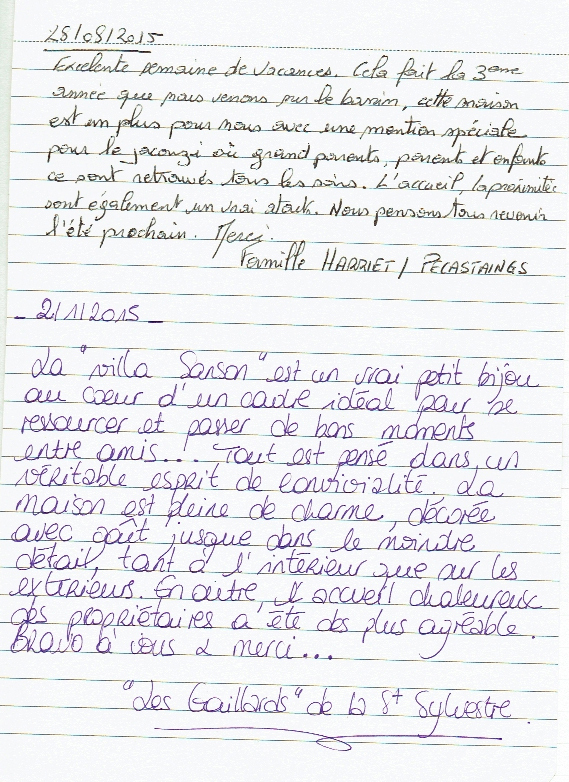 28/08/2015
Excelente semaine de vacances. Cela fait la 3eme
année que nous venons sur le bassin, cette maison
est un plus pour nous avec une mention spéciale
pour le jacouzi où grand parents, parents et enfants
ce sont retrouvés tous les soirs. L'accueil, la proximitée
sont également un vrai atack. Nous pensons tous revenir
l'été prochain. Merci.
Famille HARRIET / PECASTAINGS
- 2/1/2015 -
La "villa Sanson" est un vrai petit bijou
au coeur d'un cadre idéal pour se
ressourcer et passer de bons moments
entre amis... Tout est pensé dans un
véritable esprit de convivialité. La
maison est pleine de charme, décorée
avec goût jusque dans le moindre
détail, tant à l'intérieur que sur les
extérieurs. En outre, l'accueil chaleureux
des propriétaires a été des plus agréable.
Bravo à vous & merci...
"Les Gaillards" de la St Sylvestre.